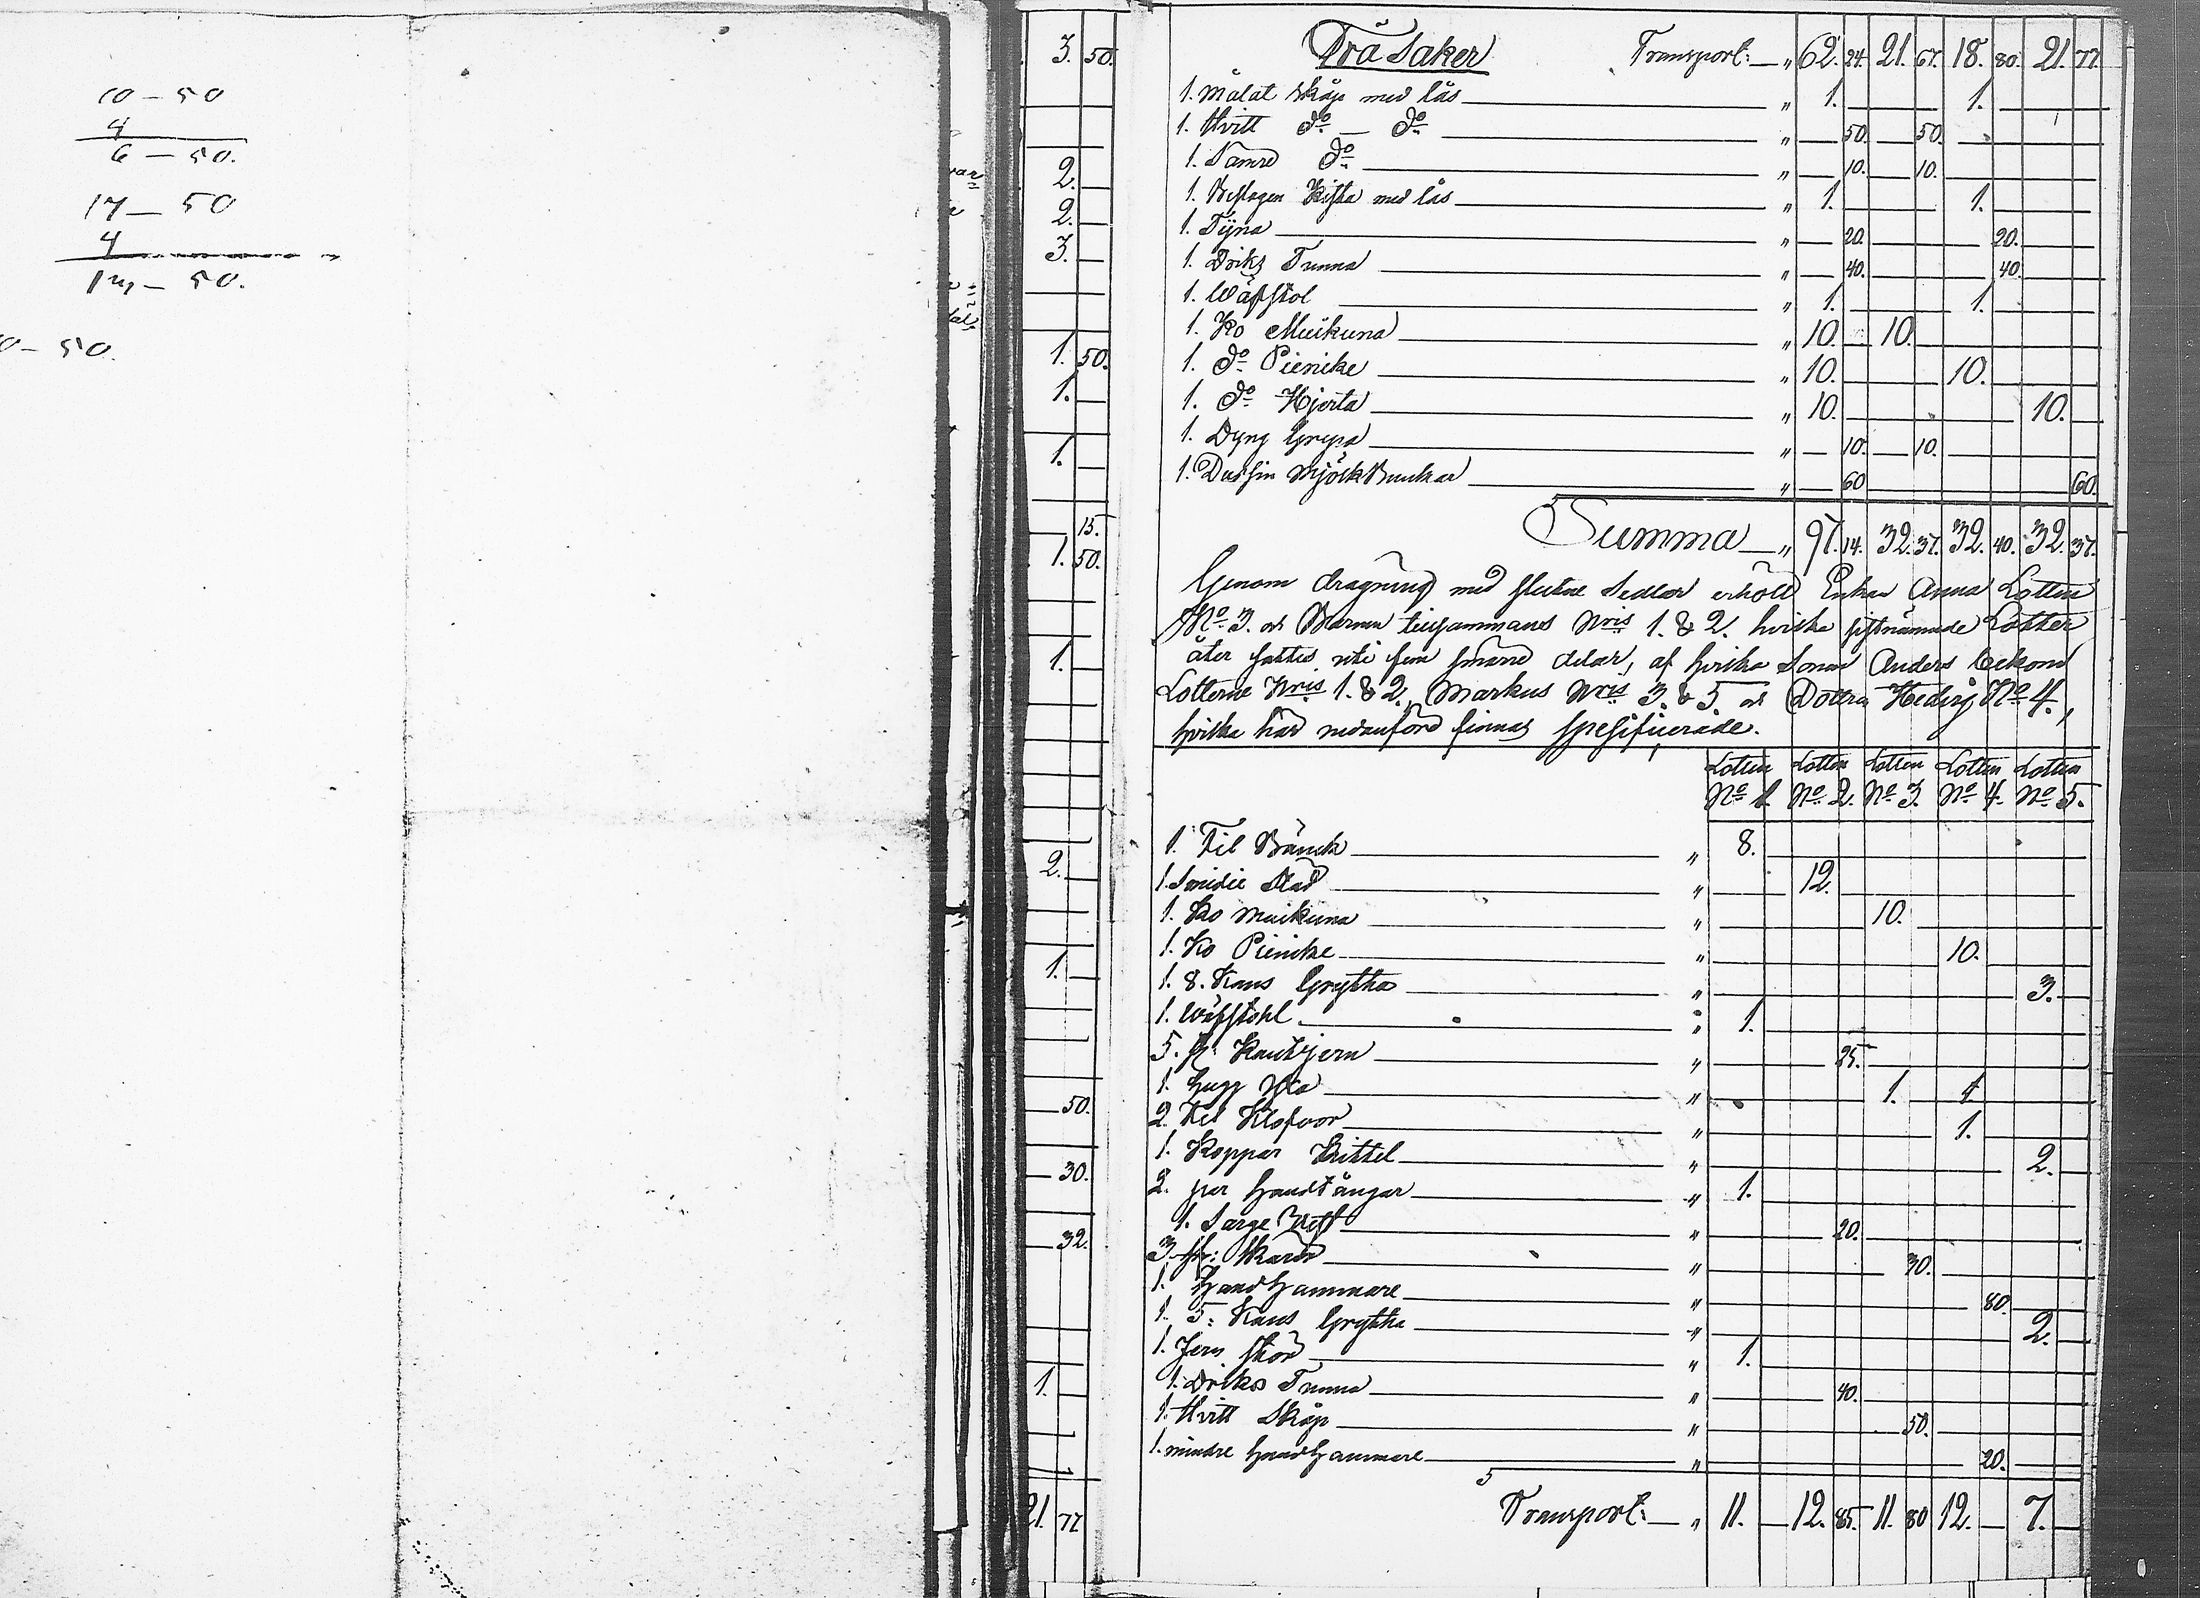 10 - 50
4
6 - 50.
17 - 50
4
13 - 50.
0 - 50.
3. 50.
2.
2.
3.
1. 50.
1.
1.
15.
1. 50.
1.
2.
1.
50.
30.
32.
1.
21. 77
Trä Saker Transport: — „ 62. 24. 21. 67. 18. 80. 21. 77.
1. Målat skåp med lås „ 1. 1.
1. Hvitt do — do „ 50. 50.
1. Sämre do „ 10. 10.
1. Beslagen Kista med lås „ 1. 1.
1. Tijna „ 20. 20.
1. Driks Tunna „ 40. 40.
1. Wäfstol „ 1. 1.
1. Ko Muikuna „ 10. 10.
1. do Pienike „ 10. 10.
1. do Hjerta „ 10. 10.
1. Dyng Grepa „ 10. 10.
1. Dussin Mjölk Bunkar „ 60 60.
Summa — „ 97. 14. 32. 37. 32. 40. 32. 37.
Genom dragning med slutne Sedlar erhöll Enkan Anna Lotten
No 3. och Barnen tillsammans Nris 1. & 2. hvilka sistnämnde Lotter
åter sattes uti fem smärre delar, af hvilka Sonen Anders bekom
Lotterne Nris 1. & 2., Markus Nris 3. & 5. och Dottren Hedvig No 4.,
hvilka här nedanföre finnas spesifiserade.
Lotten Lotten Lotten Lotten Lotten
No 1. No 2. No 3. No 4. No 5.
1. Fil Bänck „ 8.
1. Smidie Städ „ 12.
1. Ko Muikuna „ 10.
1. Ko Pienike „ 10.
1. 8. Kans Grytta „ 3.
1. Wäfstohl „ 1.
5. Kantjern „ 25.
1. „ 1. 1.
2. „ 1.
1. Koppar Kittel „ 2.
2. par Handtånger „ 1.
1. „ 20.
3. st: „ 30.
1. Hand hammare „ 80.
1. 5: Kans Grytta „ 2.
1. Jern stör „ 1.
1. Driks Tunna „ 40.
1. Hvitt Skåp „ 50.
1. mindre handhammare „ 20.
Transport: — „ 11. 12. 85. 11. 80 12. 7.